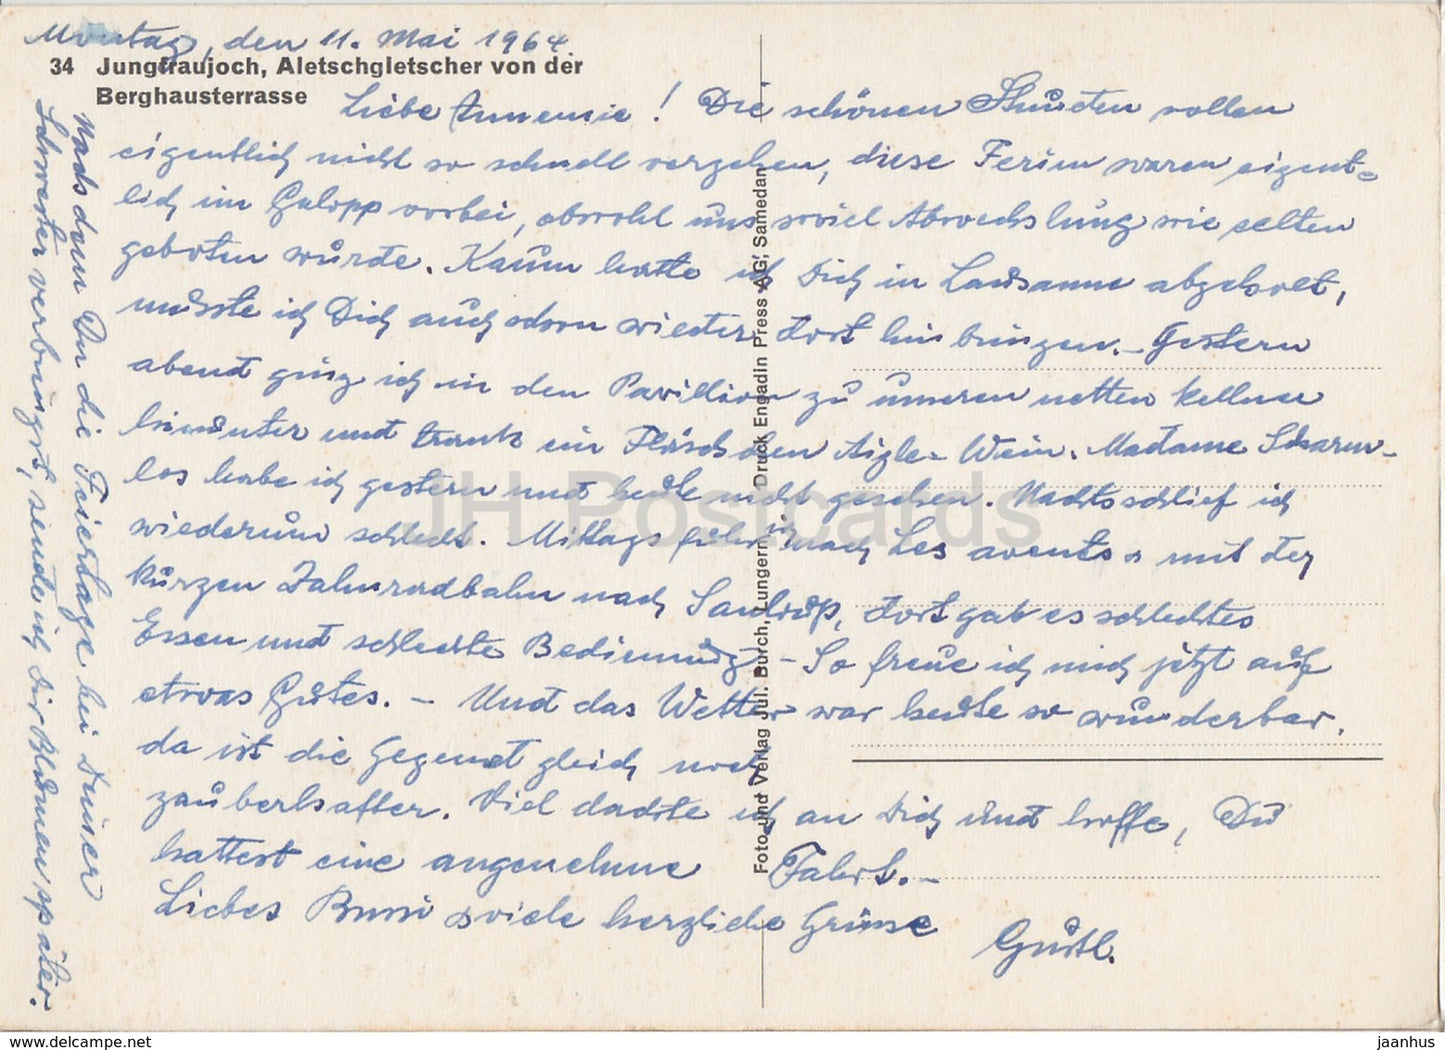 Montag, den 11. Mai 1964
34 Jungfraujoch, Aletschgletscher von der
Berghausterrasse
Liebe Annemie! Die schönen Stunden sollen
eigentlich nicht so schnell vergehen, diese Ferien waren eigent=
lich im Galopp vorbei, obwohl uns soviel Abwechslung wie selten
geboten wurde. Kaum hatte ich Dich in Lausanne abgeholt,
musste ich Dich auch schon wieder dort hinbringen. – Gestern
abend ging ich in den Pavillion zu unseren netten Kellner
hinunter und trank ein Fläschchen Aigle-Wein. Madame
los habe ich gestern und heute nicht gesehen. Nachts schlief ich
wiederum schlecht. Mittags fuhr ich nach Les avents & mit der
kurzen Zahnradbahn nach Sonloup, dort gab es schlechtes
Essen und schlechte Bedienung – So freue ich mich jetzt auf
etwas Gutes. – Und das Wetter war heute so wunderbar,
da ist die Gegend gleich noch
zauberhafter. Viel dachte ich an Dich und hoffe, Du
hattest eine angenehme Fahrt. –
Liebes Bussi & viele herzliche Grüsse
Gustl.
Nachdem Du die Feiertage bei Deiner
Schwester verbringst, sende ich Dir Blumen später.
Foto und Verlag Jul. Burch, Lungern Druck Engadin Press AG, Samedan
JH Postcards
www.delcampe.net
jaanhus